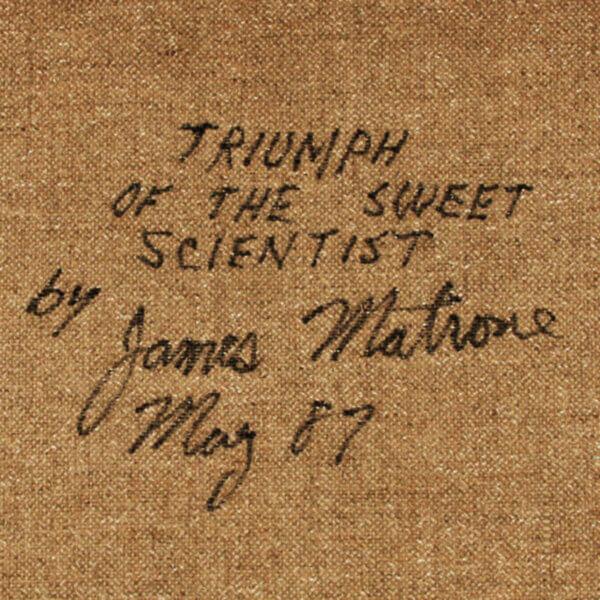 TRIUMPH
OF THE SWEET
SCIENTIST
by
James Matrone
May 87